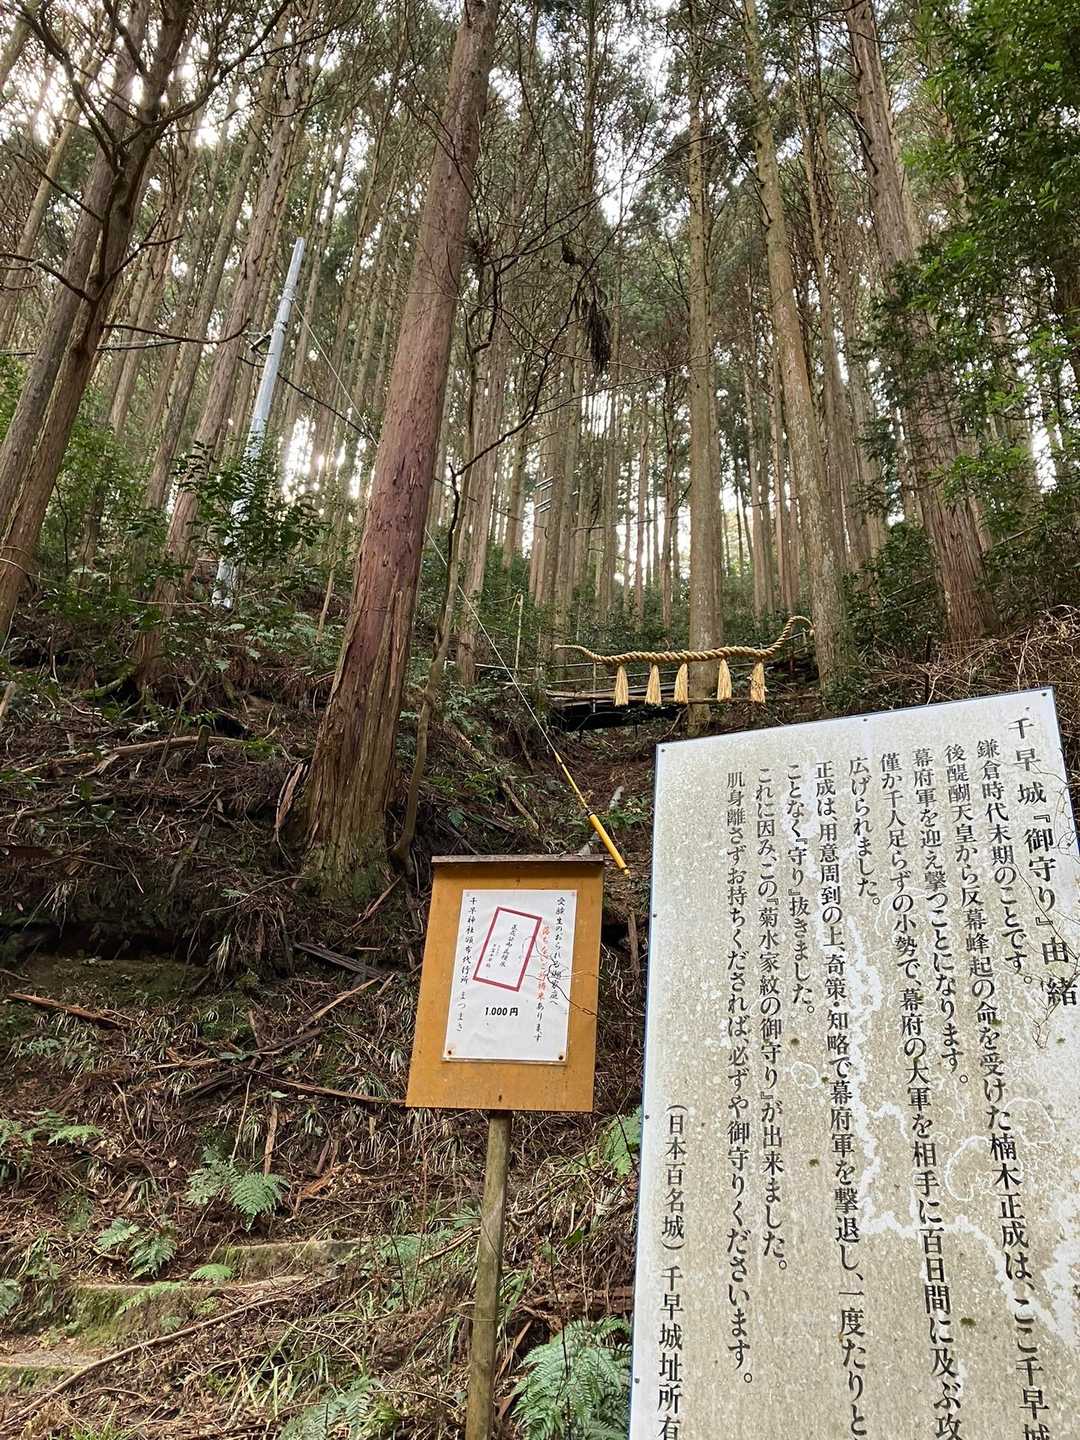 千早城『御守り』由緒
鎌倉時代末期のことです。
後醍醐天皇から反幕峰起の命を受けた楠木正成は、ここ千早城
幕府軍を迎え撃つことになります。
僅か千人足らずの小勢で、幕府の大軍を相手に百日間に及ぶ攻
広げられました。
正成は、用意周到の上、奇策・知略で幕府軍を撃退し、一度たりと
ことなく『守り』抜きました。
これに因み、この『菊水家紋の御守り』が出来ました。
肌身離さずお持ちくだされば、必ずや御守りくださいます。
(日本百名城) 千早城址所有
受験生のおられる御家庭へ
落ちないと御祈祷米あります
1.000円
千早神社頒布代行所 まつまさ